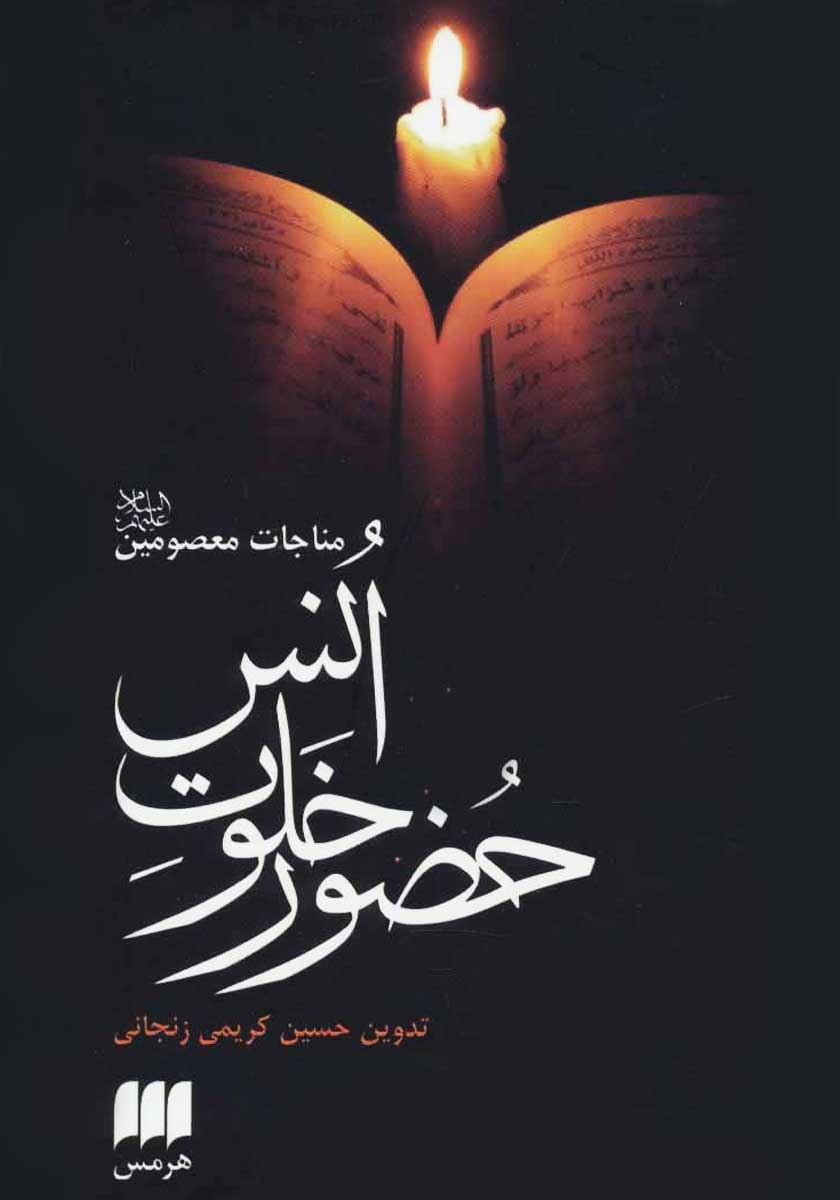 مناجات معصومین علیهم السلام
حُضور خَلوَتِ اُنس
تدوین حسین کریمی زنجانی
هرمس